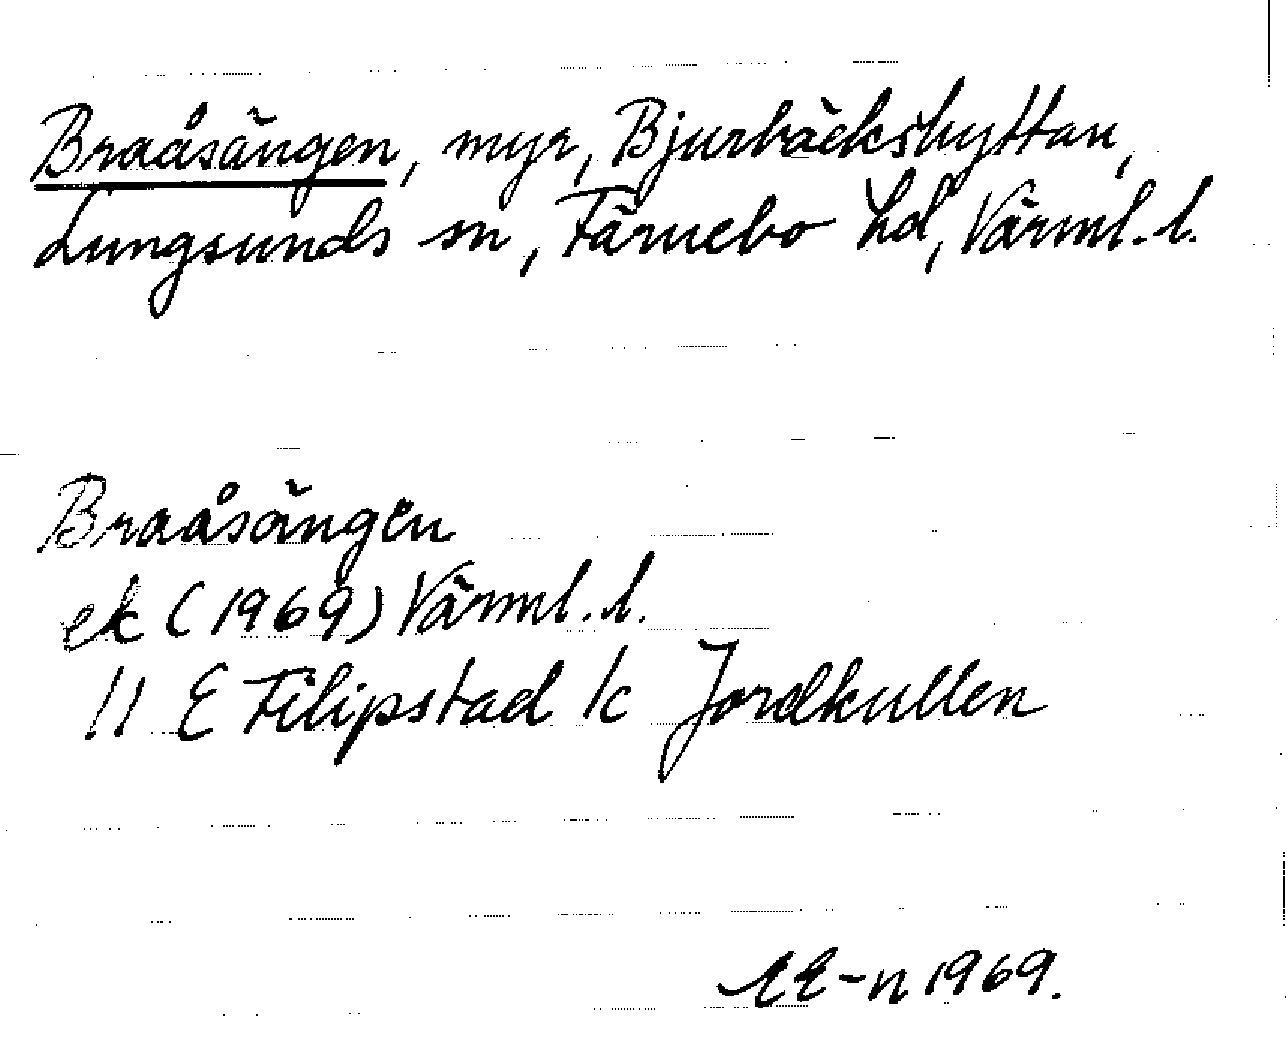 Braåsängen, myr, Bjurbäckshyttan,
Lungsunds sn, Färnebo hd, Värml. l.
Braåsängen
ek (1969) Värml. l.
11 E Filipstad 1c Jordkullen
EE-n 1969.